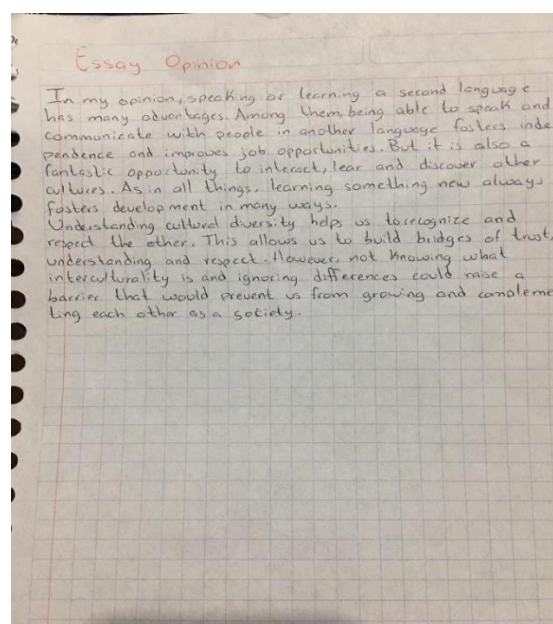 Essay Opinion
In my opinion, speaking or learning a second language
has many advantages. Among them, being able to speak and
communicate with people in another language fosters inde
pendence and improves job opportunities. But it is also a
fantastic opportunity to interact, lear and discover other
cultures. As in all things, learning something new always
fosters development in many ways.
Understanding cultural diversity helps us to recognize and
respect the other. This allows us to build bridges of trust,
understanding and respect. However, not knowing what
interculturality is and ignoring differences could raise a
barrier that would prevent us from growing and compleme
ting each other as a society.